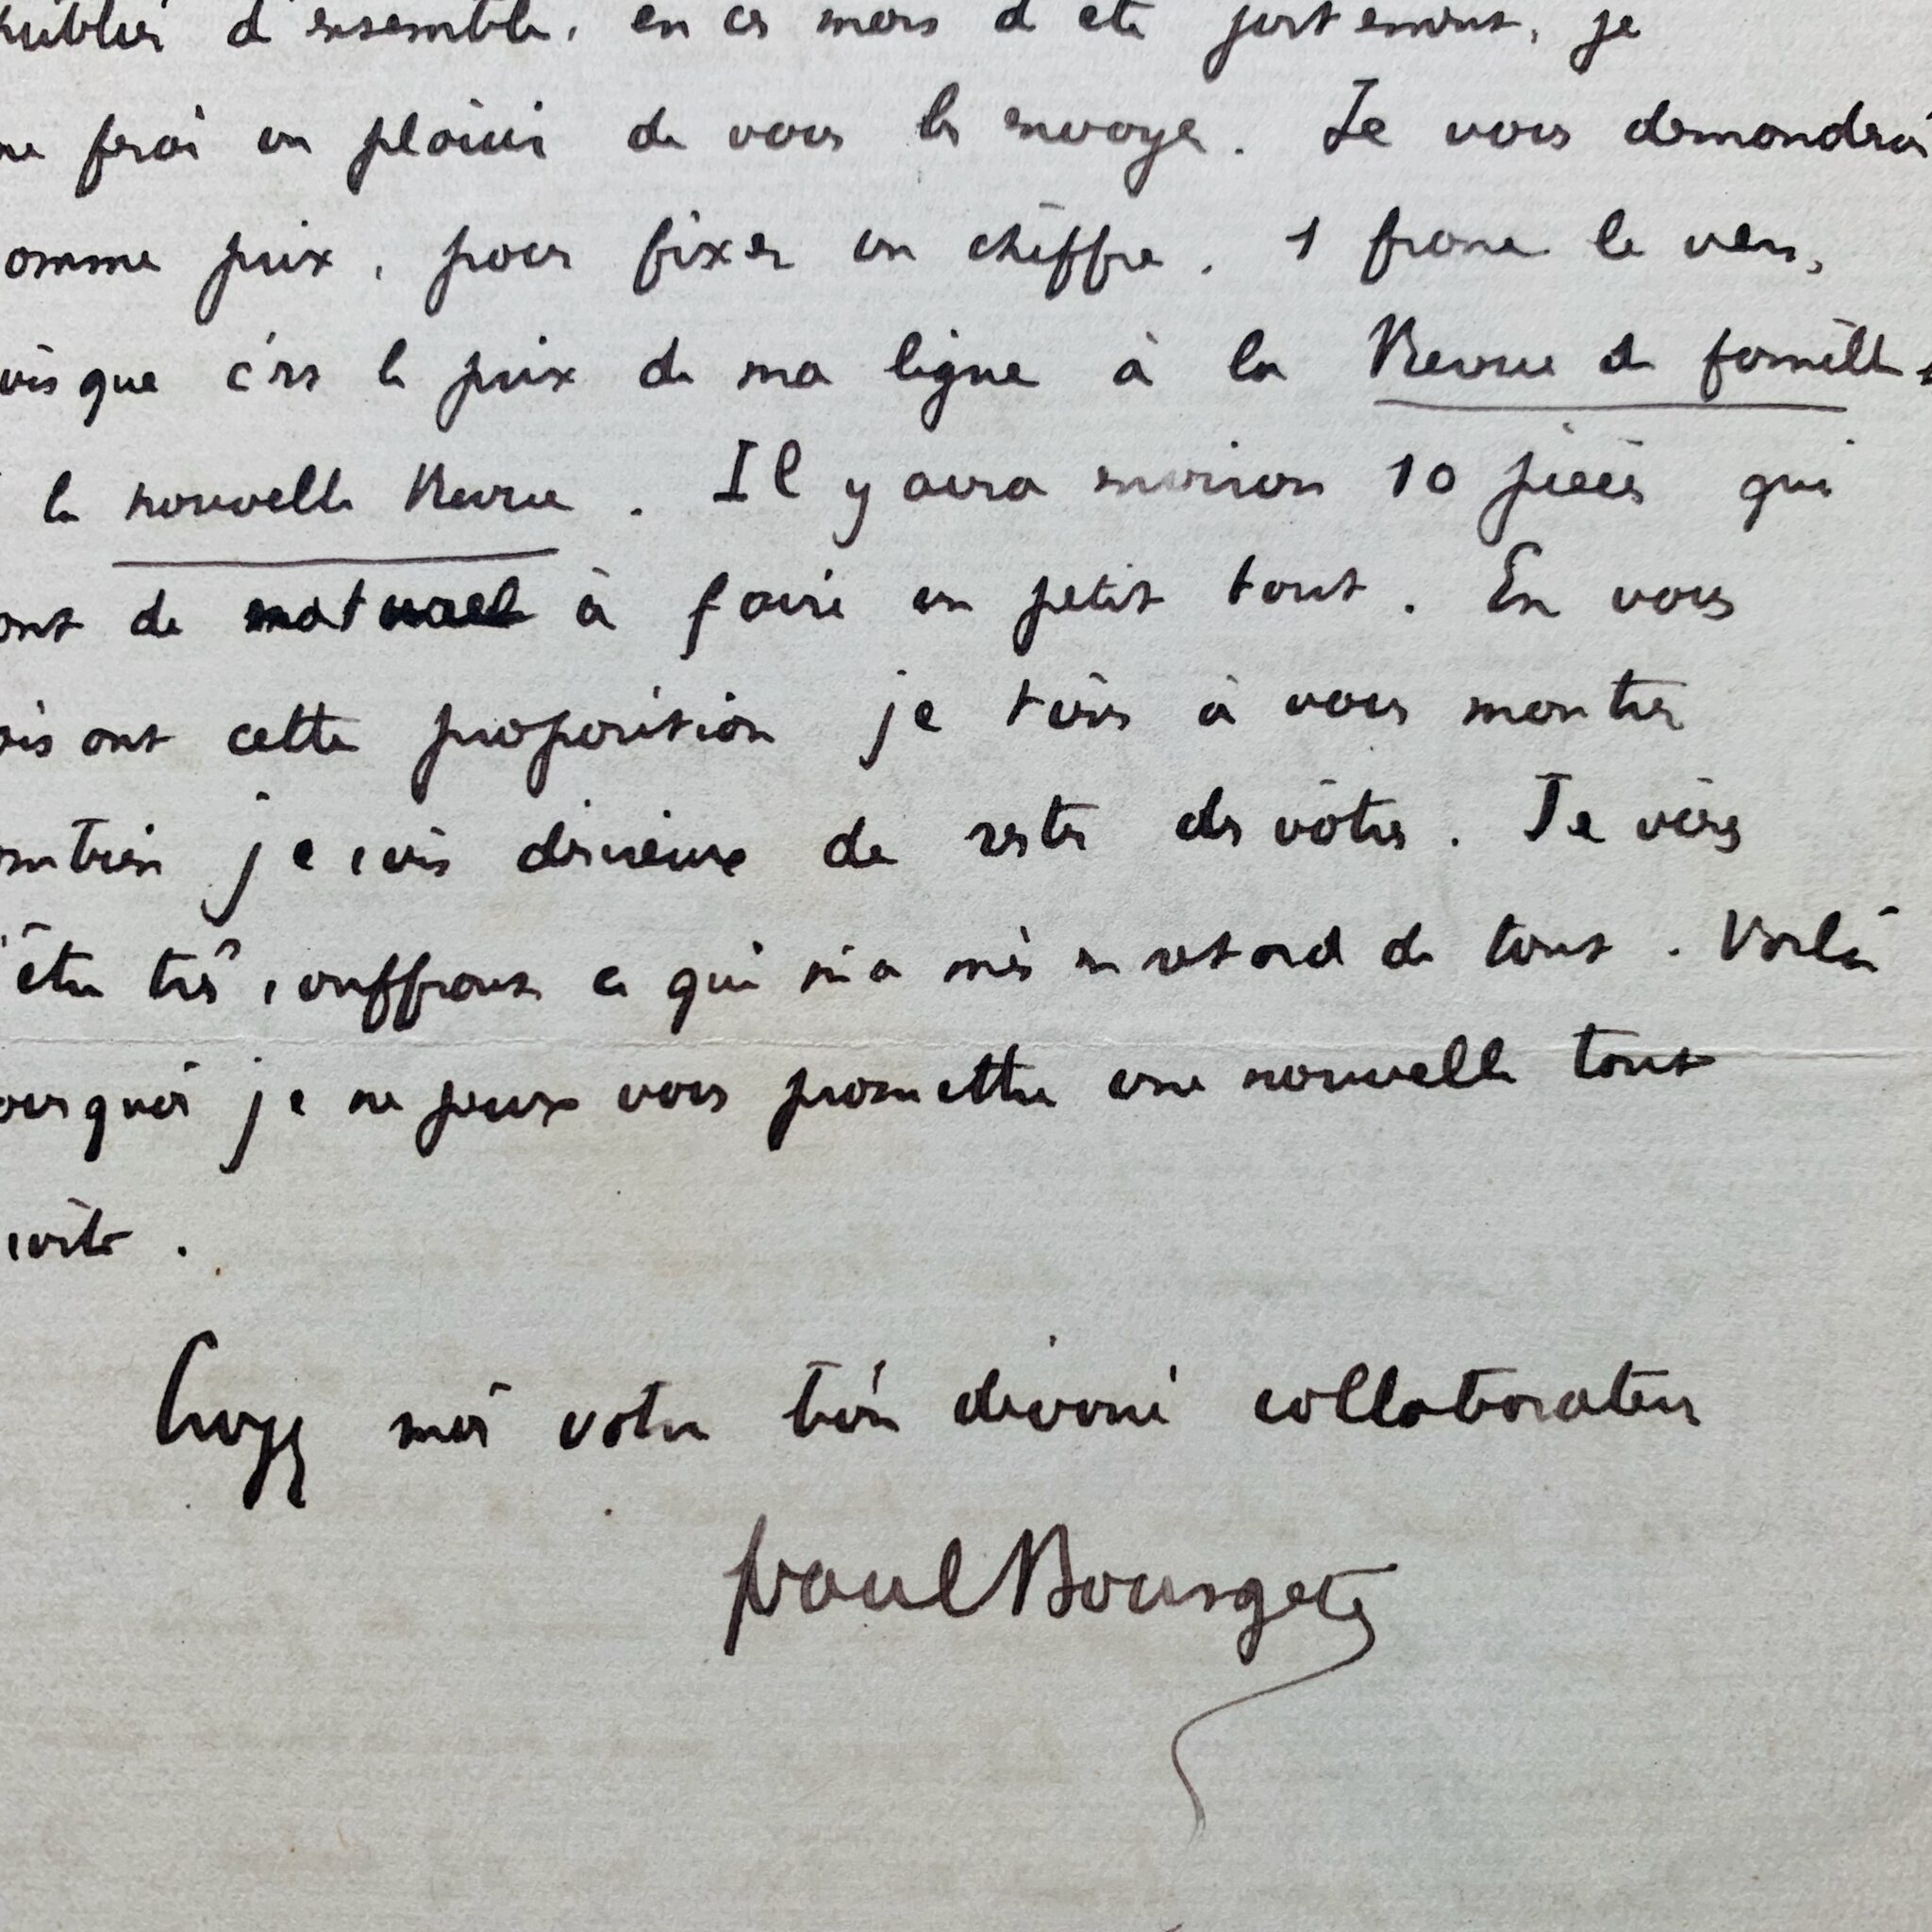 publier d'ensemble, en ces mois d'été justement, je
me ferai un plaisir de vous les envoyer. Je vous demanderai
comme prix, pour fixer un chiffre, 1 franc le vers,
puisque c'est le prix de ma ligne à la Revue de famille
la nouvelle Revue. Il y aura environ 10 pièces qui
sont de à faire un petit tout. En vous
faisant cette proposition je tiens à vous montrer
combien je suis désireux de rester des vôtres. Je viens
d'être très souffrant ce qui m'a mis en retard de tout. Voilà
pourquoi je ne peux vous promettre une nouvelle tout
suite.
Croyez moi votre bien dévoué collaborateur
Paul Bourget